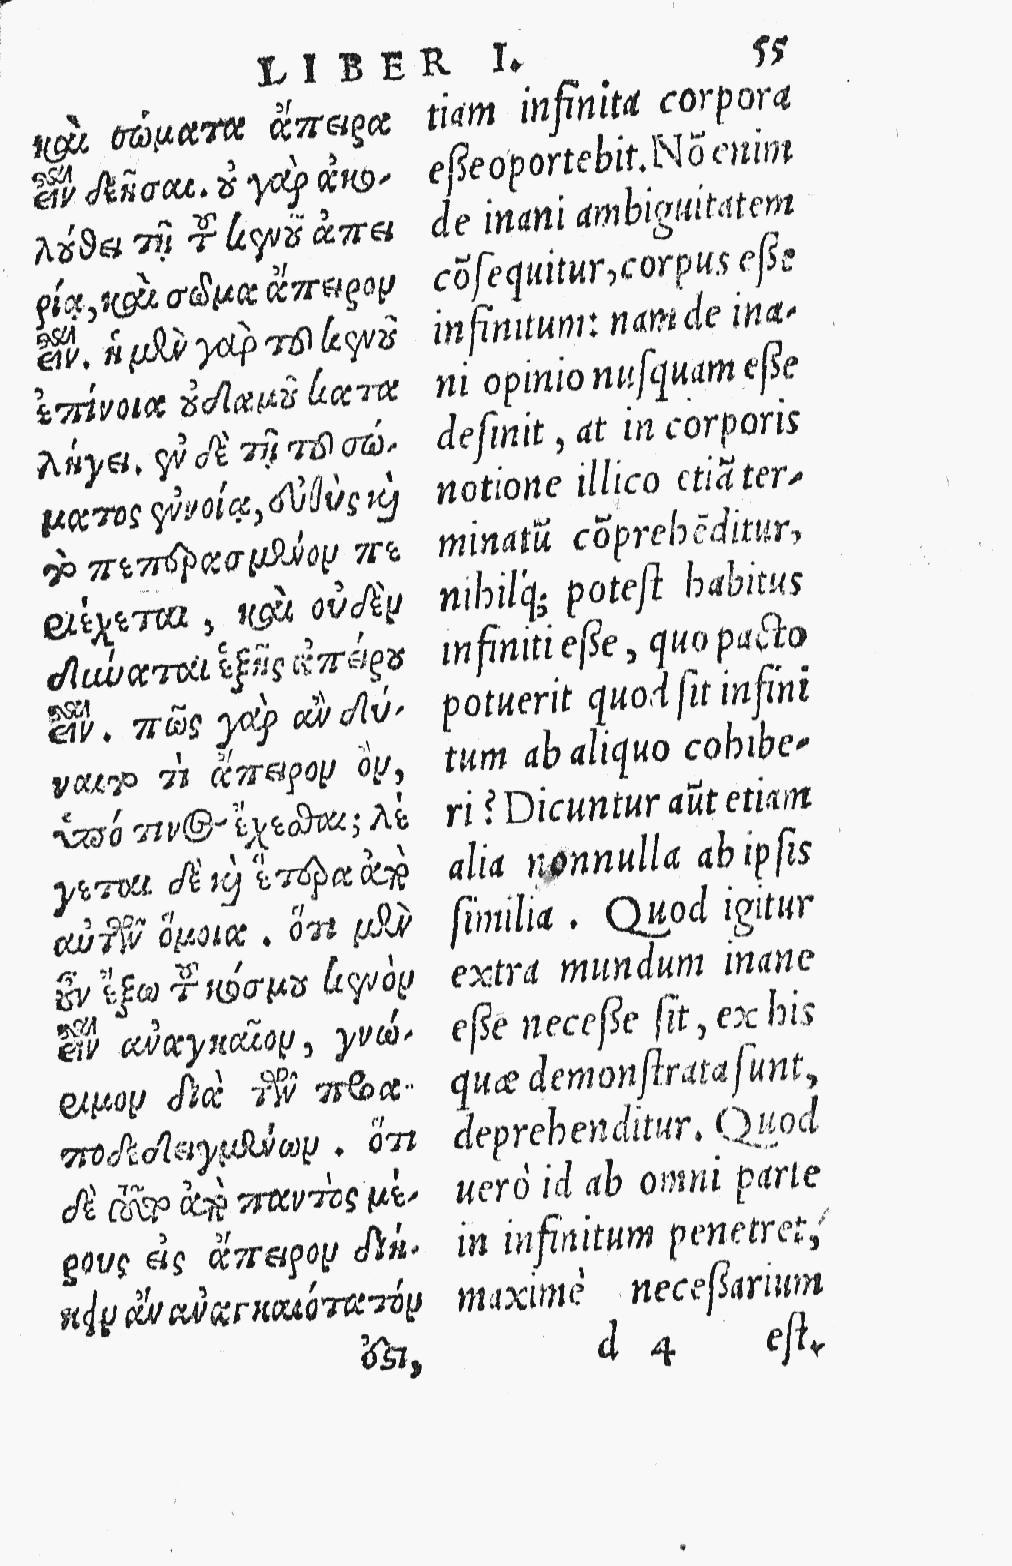 LIBER I.
55
καὶ σώματα ἄπειρα
εἶναι δεῆσαι. οὐ γὰρ ἀκο-
λούθει τῇ τοῦ κενοῦ ἀπει
ρίᾳ, καὶ σῶμα ἄπειρον
εἶναι. ἡ μὲν γὰρ τοῦ κενοῦ
ἐπίνοια οὐδαμοῦ κατα
λήγει. ἐν δὲ τῇ τοῦ σώ-
ματος ἐννοίᾳ, εὐθὺς καὶ
τὸ πεπερασμένον πε
ριέχεται, καὶ οὐδὲν
δύναται ἑξῆς ἀπείρου
εἶναι. πῶς γὰρ ἂν δύ-
ναιτο τὶ ἄπειρον ὂν,
ὑπό τινος ἔχεσθαι; λέ
γεται δὲ καὶ ἕτερα ἀπὸ
αὐτῶν ὅμοια. ὅτι μὲν
οὖν ἔξω τοῦ κόσμου κενὸν
εἶναι ἀναγκαῖον, γνώ-
ριμον διὰ τῶν προα-
ποδεδειγμένων. ὅτι
δὲ τοῦτο ἀπὸ παντὸς μέ-
ρους εἰς ἄπειρον διή-
κειν ἀναγκαιότατόν
ἐστι,
tiam infinita corpora
eſſe oportebit. Nõ enim
de inani ambiguitatem
cõſequitur, corpus eſſe
infinitum: nam de ina-
ni opinio nuſquam eſſe
deſinit, at in corporis
notione illico etiã ter-
minatũ cõprehēditur,
nihilq́; poteſt habitus
infiniti eſſe, quo pacto
potuerit quod ſit infini
tum ab aliquo cohibe-
ri? Dicuntur aũt etiam
alia nonnulla ab ipſis
ſimilia. Quod igitur
extra mundum inane
eſſe neceſſe ſit, ex his
quæ demonſtrata ſunt,
deprehenditur. Quod
uerò id ab omni parte
in infinitum penetret,
maximè neceſſarium
d 4 eſt.